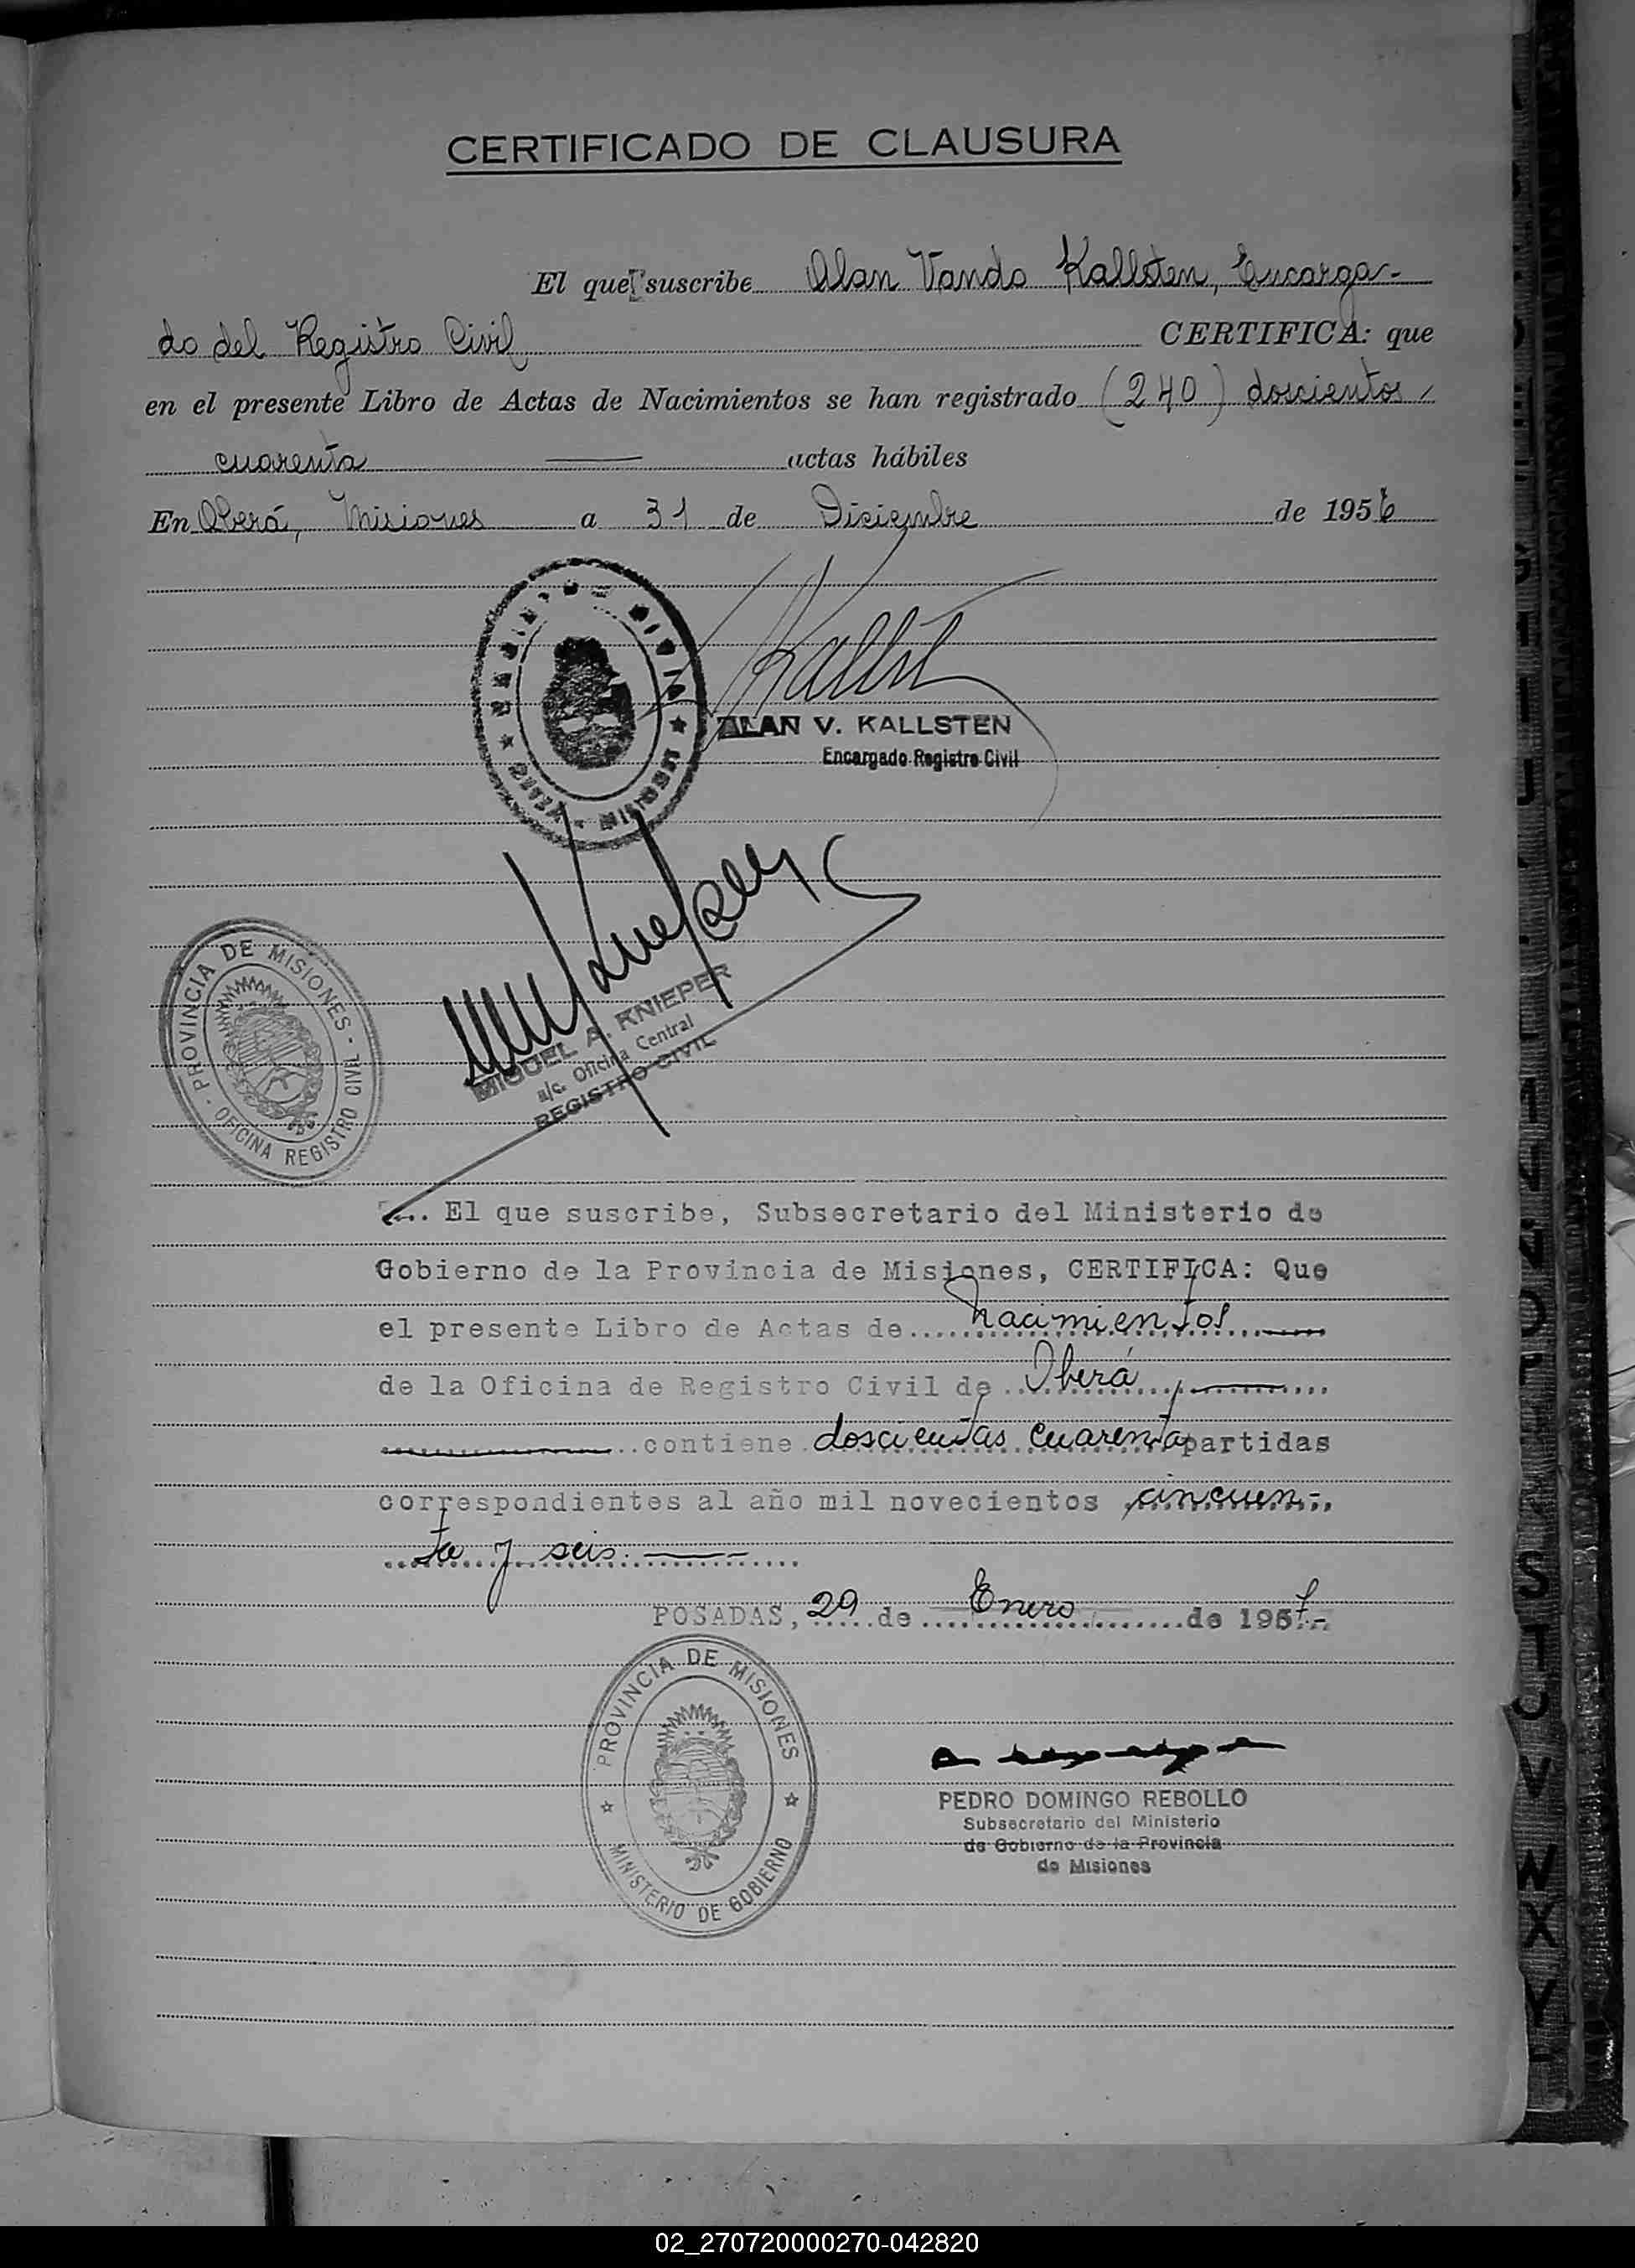 CERTIFICADO DE CLAUSURA
El que suscribe Alan Vando Kallsten, Encarga-
do del Registro Civil CERTIFICA: que
en el presente Libro de Actas de Nacimientos se han registrado (240) doscientos
cuarenta — actas hábiles
En Oberá, Misiones a 31 de Diciembre de 1956
Kallst
ALAN V. KALLSTEN
Encargado Registro Civil
MISIONES
PROVINCIA DE MISIONES -
- OFICINA REGISTRO CIVIL
MIGUEL A. KNIEPER
a/c. Oficina Central
REGISTRO CIVIL
... El que suscribe, Subsecretario del Ministerio de
Gobierno de la Provincia de Misiones, CERTIFICA: Que
el presente Libro de Actas de Nacimientos
de la Oficina de Registro Civil de Oberá
contiene doscientas cuarenta partidas
correspondientes al año mil novecientos cincuen-
ta y seis.
POSADAS, 29 de Enero de 1957.-
PROVINCIA DE MISIONES
MINISTERIO DE GOBIERNO
PEDRO DOMINGO REBOLLO
Subsecretario del Ministerio
de Gobierno de la Provincia
de Misiones
S
T
U
V
W
X
Y
02_270720000270-042820